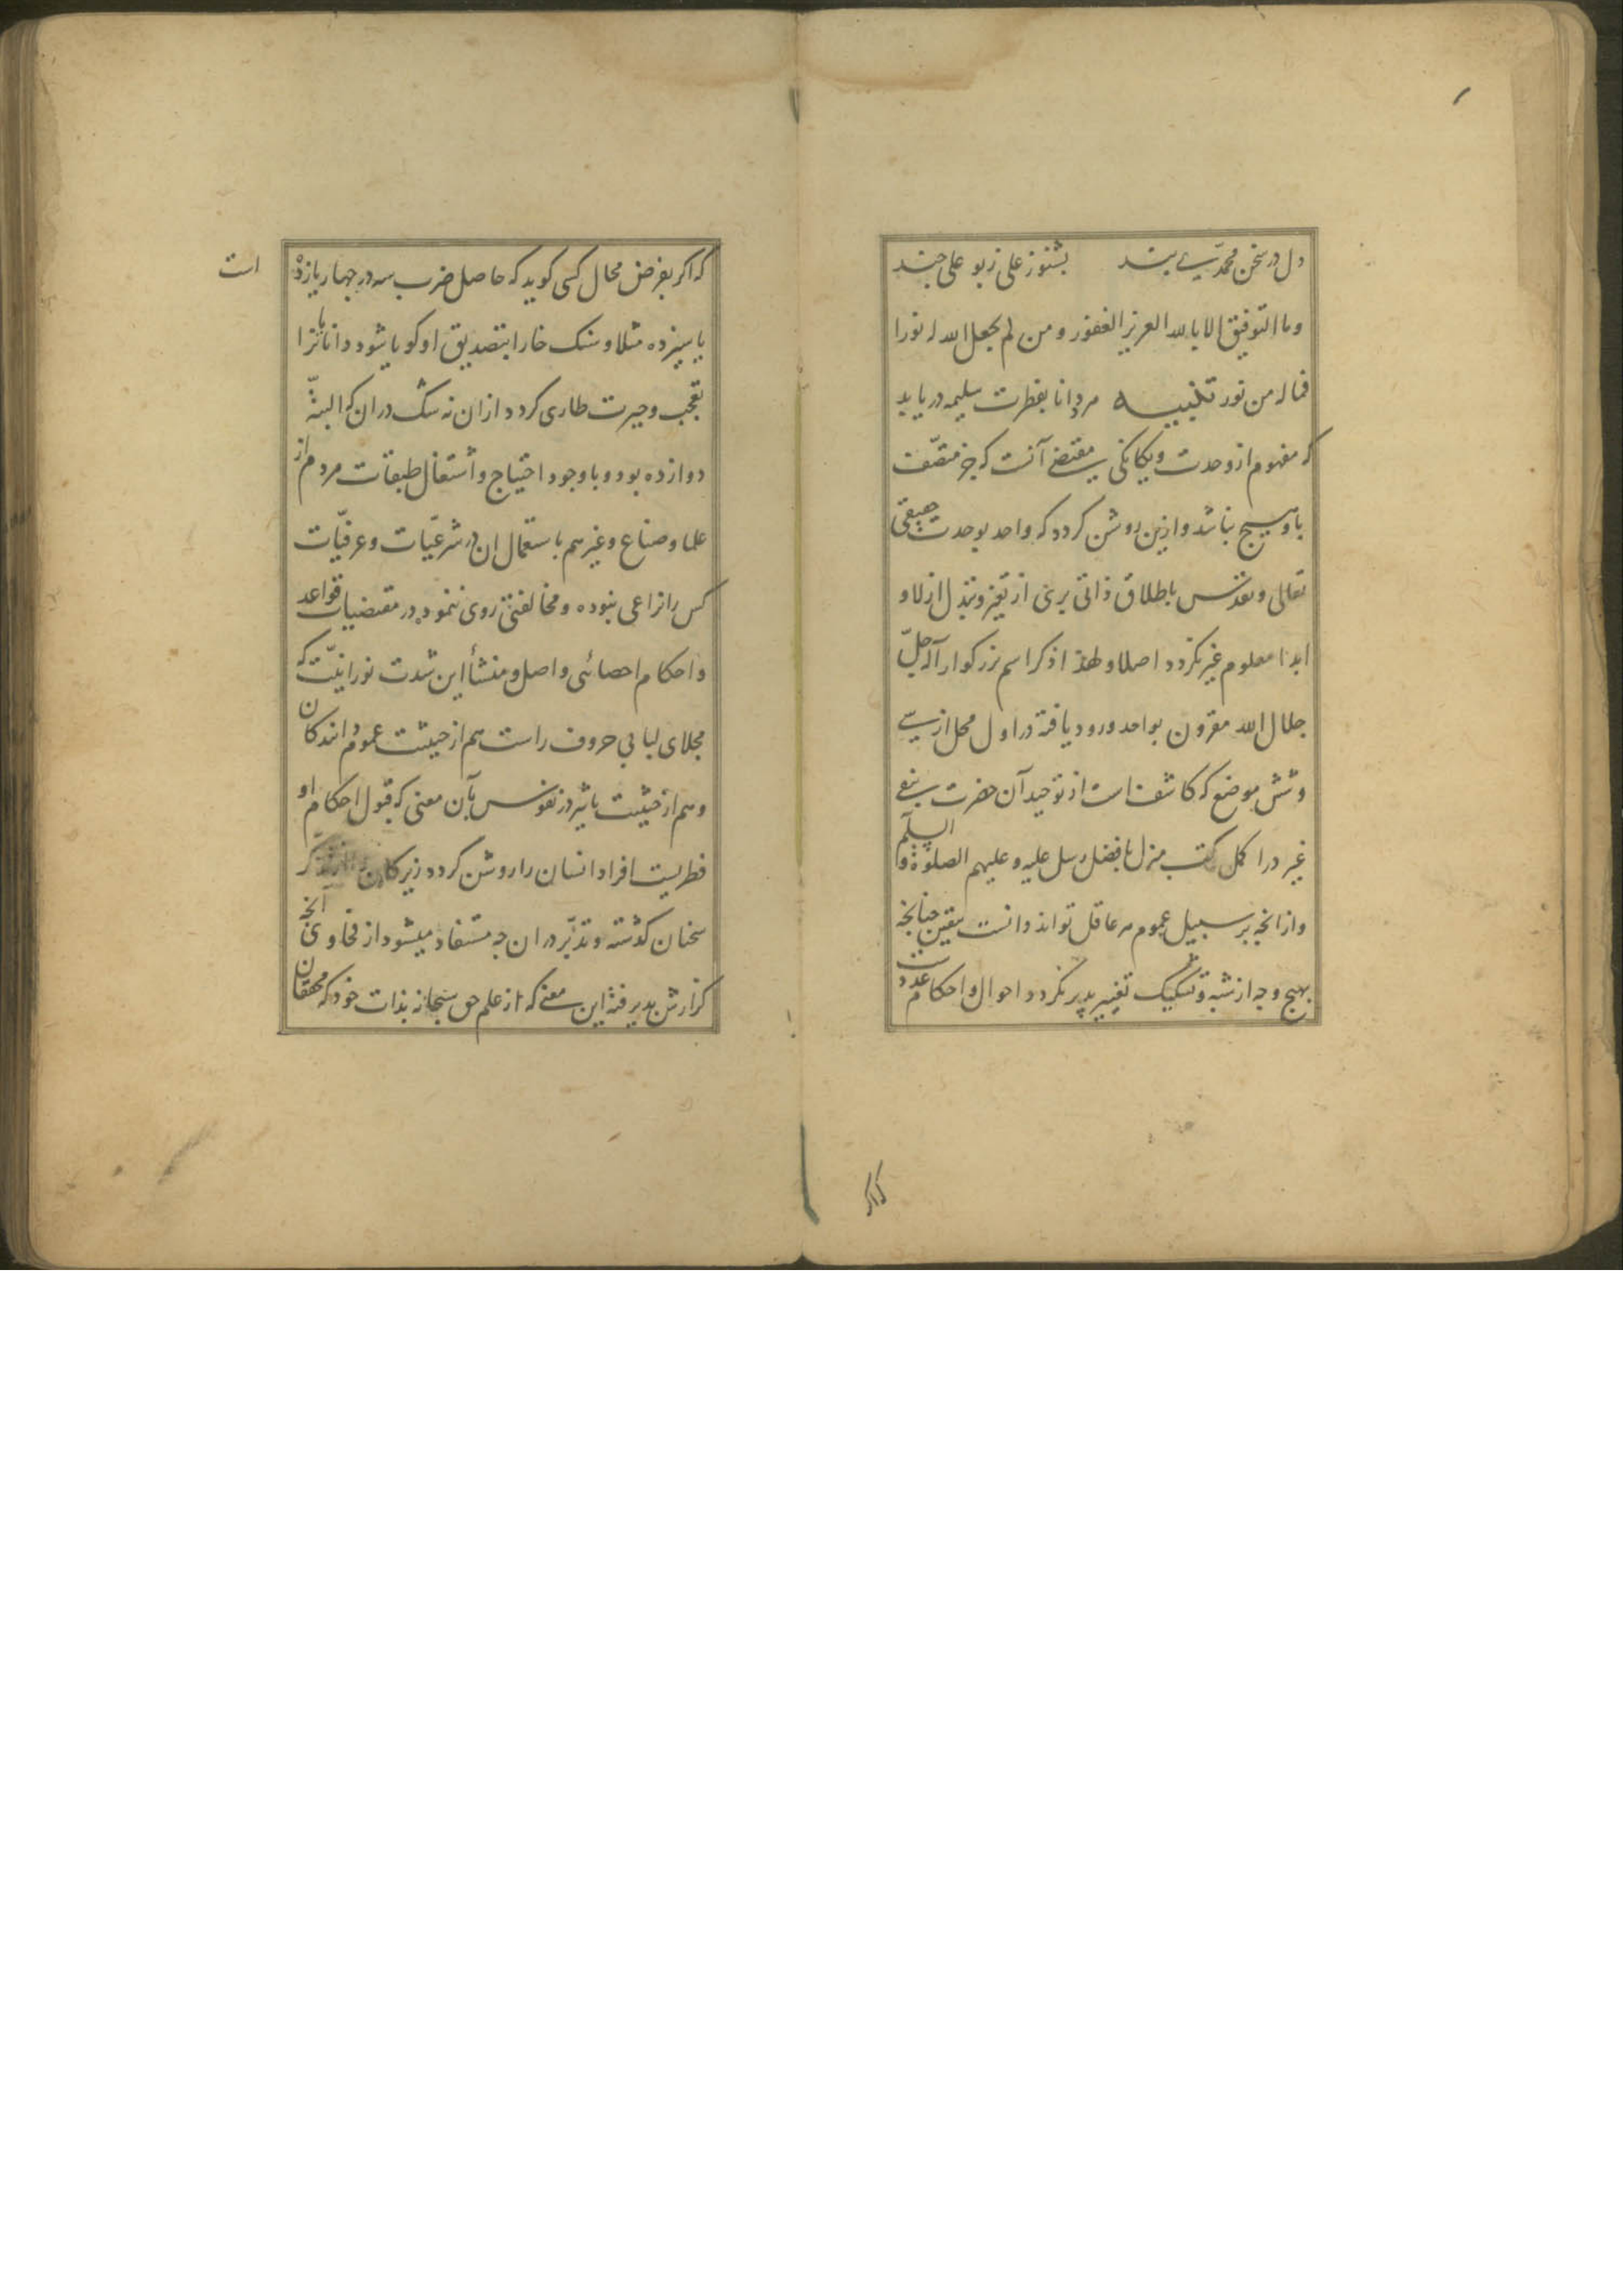 دل در سخن محمدی بند بشنو ز علی ز بو علی چند
وما التوفیق الا بالله العزیز الغفور و من لم یجعل الله له نورا
فماله من نور تنبیه مرد دانا بفطرت سلیمه دریابد
که مفهوم از وحدت و یکانکی مقتضی آنست که جز متصف
باو هیچ نباشد و ازین روشن کردد که واحد بوحدت حقیقی
تعالی و تقدس باطلاق ذاتی بری از تغیر و تبدل ازلا و
ابدا معلوم غیر نکردد اصلا و لهذا ذکر اسم بزرکوار اله جل
جلال الله مقرون بواحد ورود یافته در اول محل از سی
و شش موضع که کاشف است از توحید آن حضرت بنفی
غیر در اکمل کتب منزل بافضل رسل علیه و علیهم الصلوة و السلم
و از انجه بر سبیل عموم هر عاقل تواند دانست بیقین جنانجه
بهیج وجه از شبه و تشکیک تغییر پذیر نکردد احوال و احکام عددست
که اکر
که اکر بفرض محال کسی کوید که حاصل ضرب سه در جهار یازده است
یا سیزده مثلا و سنک خارا بتصدیق او کویا شود دانایانرا
تعجب و حیرت طاری کردد از ان نه شک در ان که البته
دوازده بود و با وجود احتیاج و اشتغال طبقات مردم از
علما و صناع و غیرهم باستعمال ان در شرعیات و عرفیات
کس را نزاعی نبوده و مخالفتی روی ننموده در مقتضیات قواعد
و احکام احصائی و اصل و منشأ این شدت نورانیت که
مجلای لبابی حروف راست هم از حیثیت عموم دانندکان
و هم از حیثیت تاثیر در نفوس بآن معنی که قبول احکام او
فطریست افراد انسان را روشن کردد زیرکان را از تذکر
سخنان کذشته و تدبر در ان جه مستفاد میشود از فحاوی انجه
کزارش پذیرفته این معنی که از علم حق سبحانه بذات خود که محققان